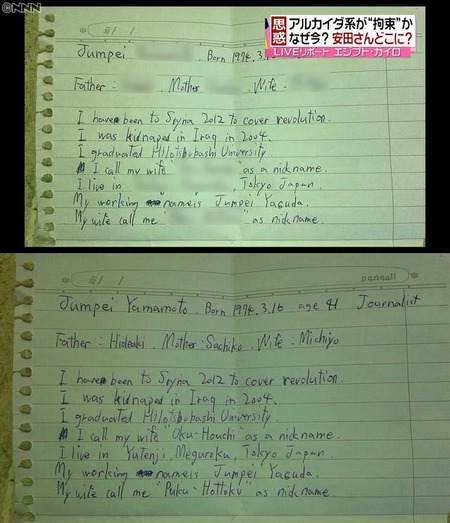 ©NNN
思惑
アルカイダ系が“拘束”か
なぜ今?安田さんどこに?
LIVEリポート エジプト・カイロ
Jumpei Born 1974.3.16
Father: Mother Wife
I have been to Syria 2012 to cover revolution.
I was kidnaped in Iraq in 2004.
I graduated Hitotsubashi University
I call my wife " " as a nickname.
I live in , Tokyo Japan.
My working name is Jumpei Yasuda.
My wife call me " " as nickname.
Jumpei Yamamoto Born 1974.3.16 age 41 Journalist
Father: Hideaki, Mother: Sachiko, Wife: Michiyo
I have been to Syria 2012 to cover revolution.
I was kidnaped in Iraq in 2004.
I graduated Hitotsubashi University
I call my wife "Oku-Houchi" as a nickname.
I live in Yutenji, Meguroku, Tokyo Japan.
My working name is Jumpei Yasuda.
My wife call me "Puku-Hottoku" as nickname